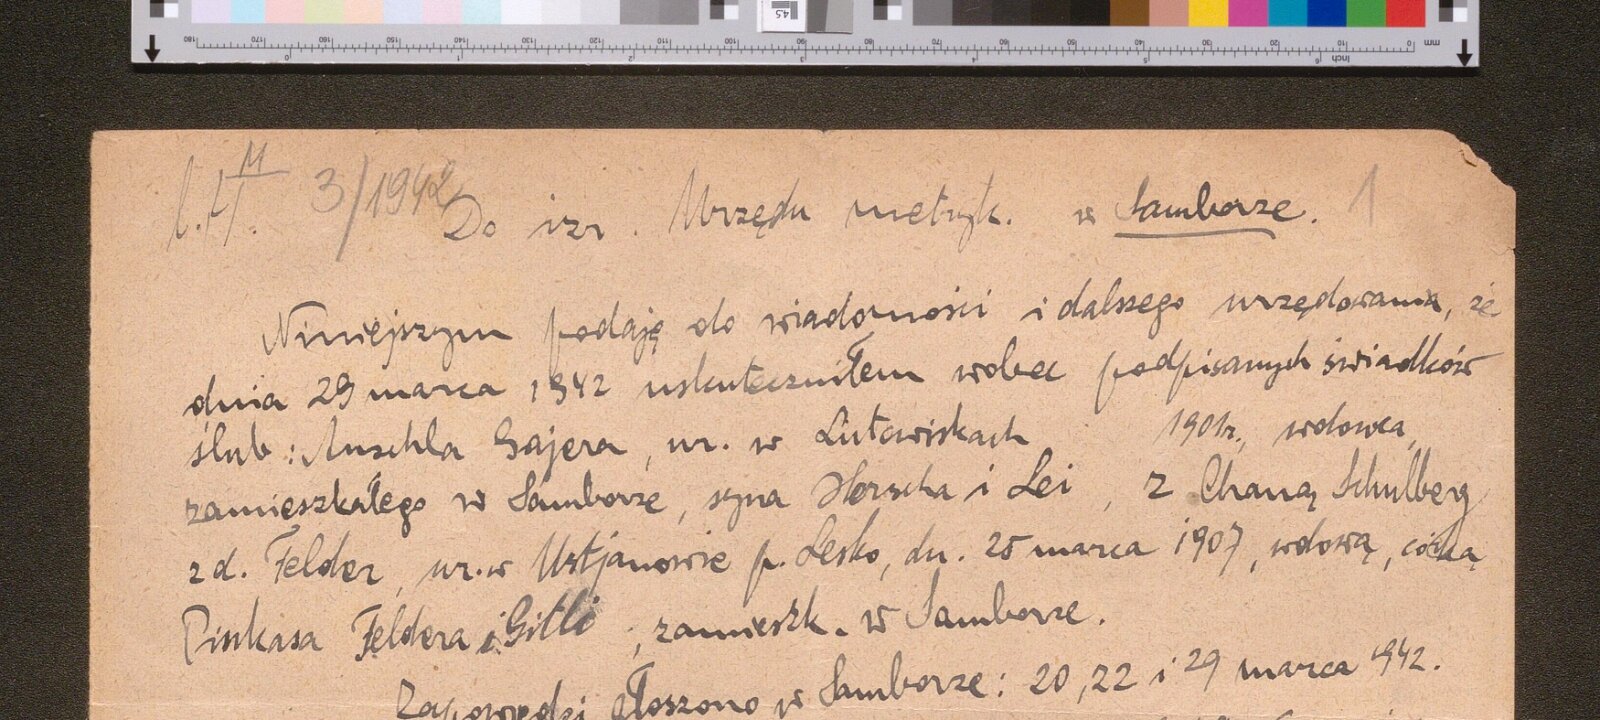 3/1942
Do izr. Urzędu metryk. w Samborze. 1
Niniejszym podaję do wiadomości i dalszego urzędowania, że
dnia 29 marca 1942 uskuteczniłem wobec podpisanych świadków
ślub: Anschla Gajera, ur. w Lutowiskach 1901r., wdowca,
zamieszkałego w Samborze, syna Herscha i Lei, z Chaną Schulberg
z d. Felder, ur. w Ustjanowie p. Lesko, dn. 25 marca 1907, wdową, córką
Pinkasa Feldera i Gitli, zamieszk. w Samborze.
Zapowiedzi głoszono w Samborze: 20, 22 i 29 marca 1942.